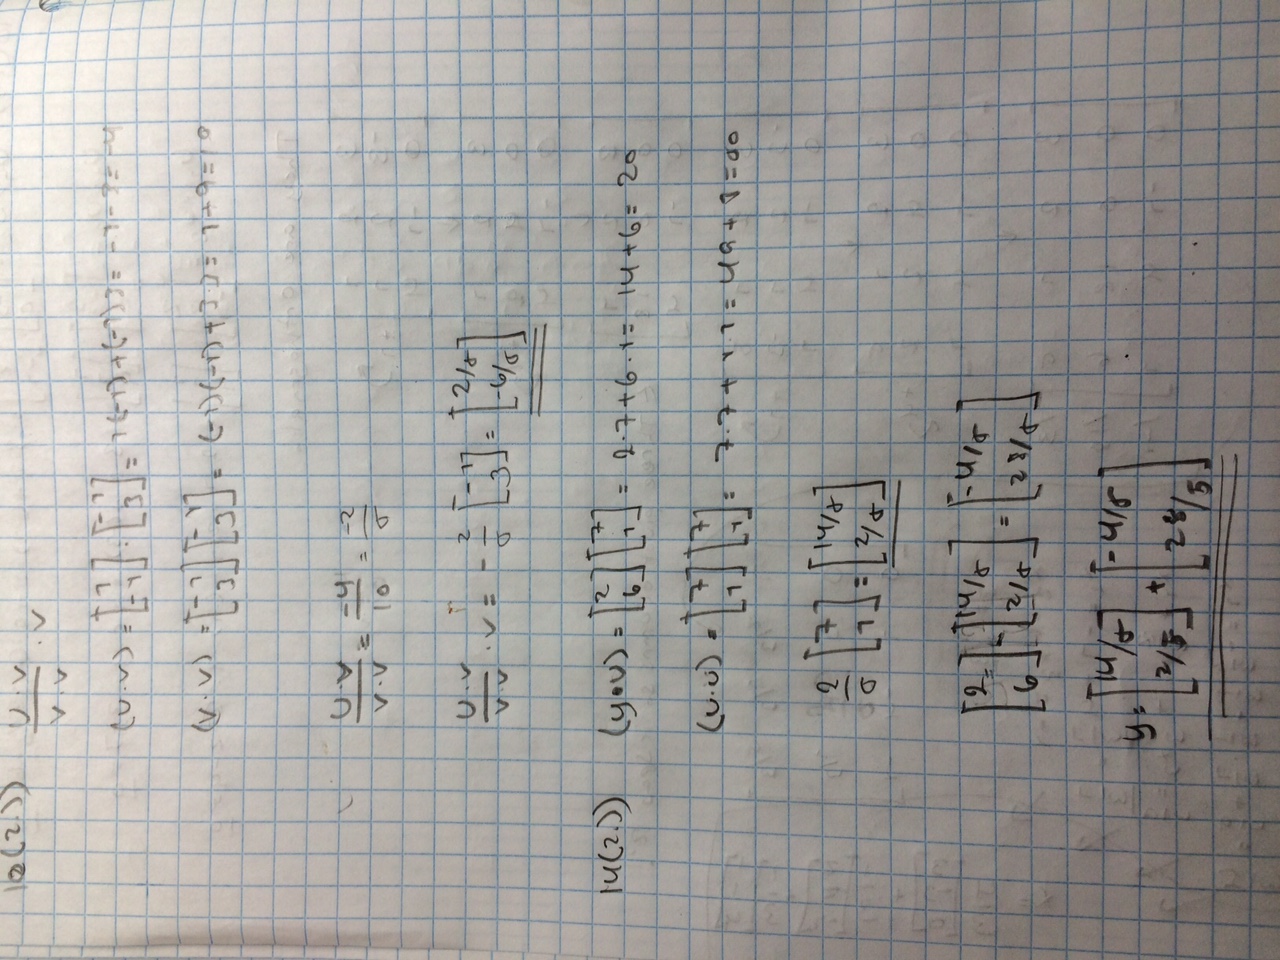 10(2.)) U·V / V·V · V
(U·V) = [1 -1] · [-1 3] = 1(-1)+(-1)3 = -1-3 = -4
(V·V) = [-1 3] [-1 3] = (-1)(-1)+3·3 = 1+9 = 10
U·V / V·V = -4/10 = -2/5
U·V / V·V · V = -2/5 [-1 3] = [2/5 -6/5]
14(2.)) (y•U) = [2 6] [7 1] = 2·7+6·1 = 14+6 = 20
(U·U) = [7 1] [7 1] = 7·7+1·1 = 49+1 = 50
2/5 [7 1] = [14/5 2/5]
[2 6] - [14/5 2/5] = [-4/5 28/5]
y = [14/5 2/5] + [-4/5 28/5]